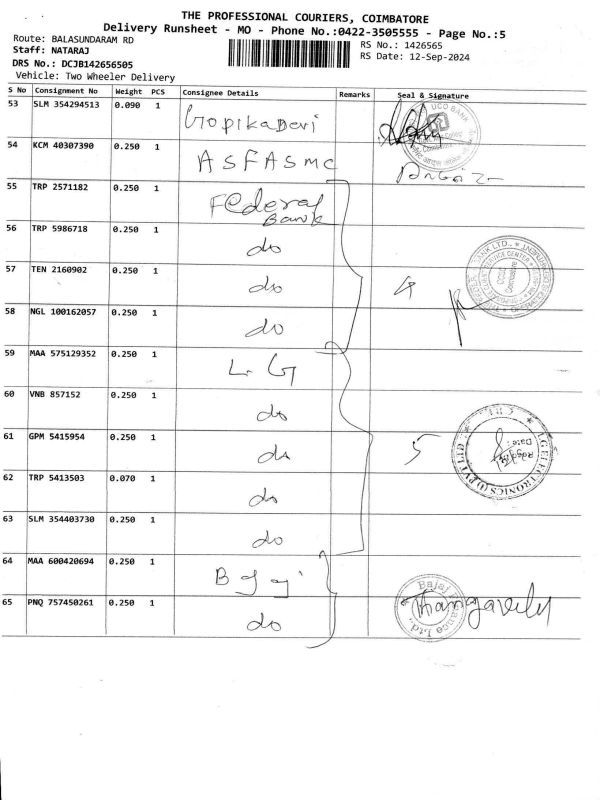 THE PROFESSIONAL COURIERS, COIMBATORE
Delivery Runsheet - MO - Phone No.:0422-3505555 - Page No.:5
Route: BALASUNDARAM RD
Staff: NATARAJ
DRS No.: DCJB142656505
Vehicle: Two Wheeler Delivery
RS No.: 1426565
RS Date: 12-Sep-2024
S No Consignment No Weight PCS Consignee Details Remarks Seal & Signature
53 SLM 354294513 0.090 1 Gopika Devi
UCO BANK
54 KCM 40307390 0.250 1 ASFASMC
55 TRP 2571182 0.250 1 Federal Bank
56 TRP 5986718 0.250 1 do
57 TEN 2160902 0.250 1 do 4
BANK LTD.,
58 NGL 100162057 0.250 1 do
59 MAA 575129352 0.250 1 L G
60 VNB 857152 0.250 1 do
61 GPM 5415954 0.250 1 do 5
LG ELECTRONICS (I) PVT LTD
Date:
62 TRP 5413503 0.070 1 do
63 SLM 354403730 0.250 1 do
64 MAA 600420694 0.250 1 Bajaj
65 PNQ 757450261 0.250 1 do
Bajaj Finance Ltd.,
Thangavelu